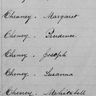 Cheney, Margaret
Cheney, Prudence
Cheney, Joseph
Cheney, Susanna
Cheney, Mehitabell